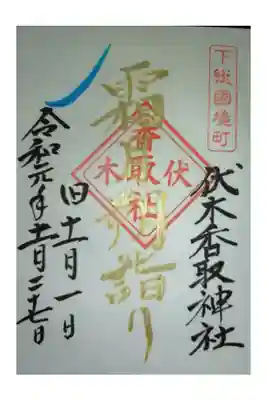 下総國境町
伏木香取神社
霜月朔詣り
伏木
香取社
旧十一月一日
令和元年十一月二十七日